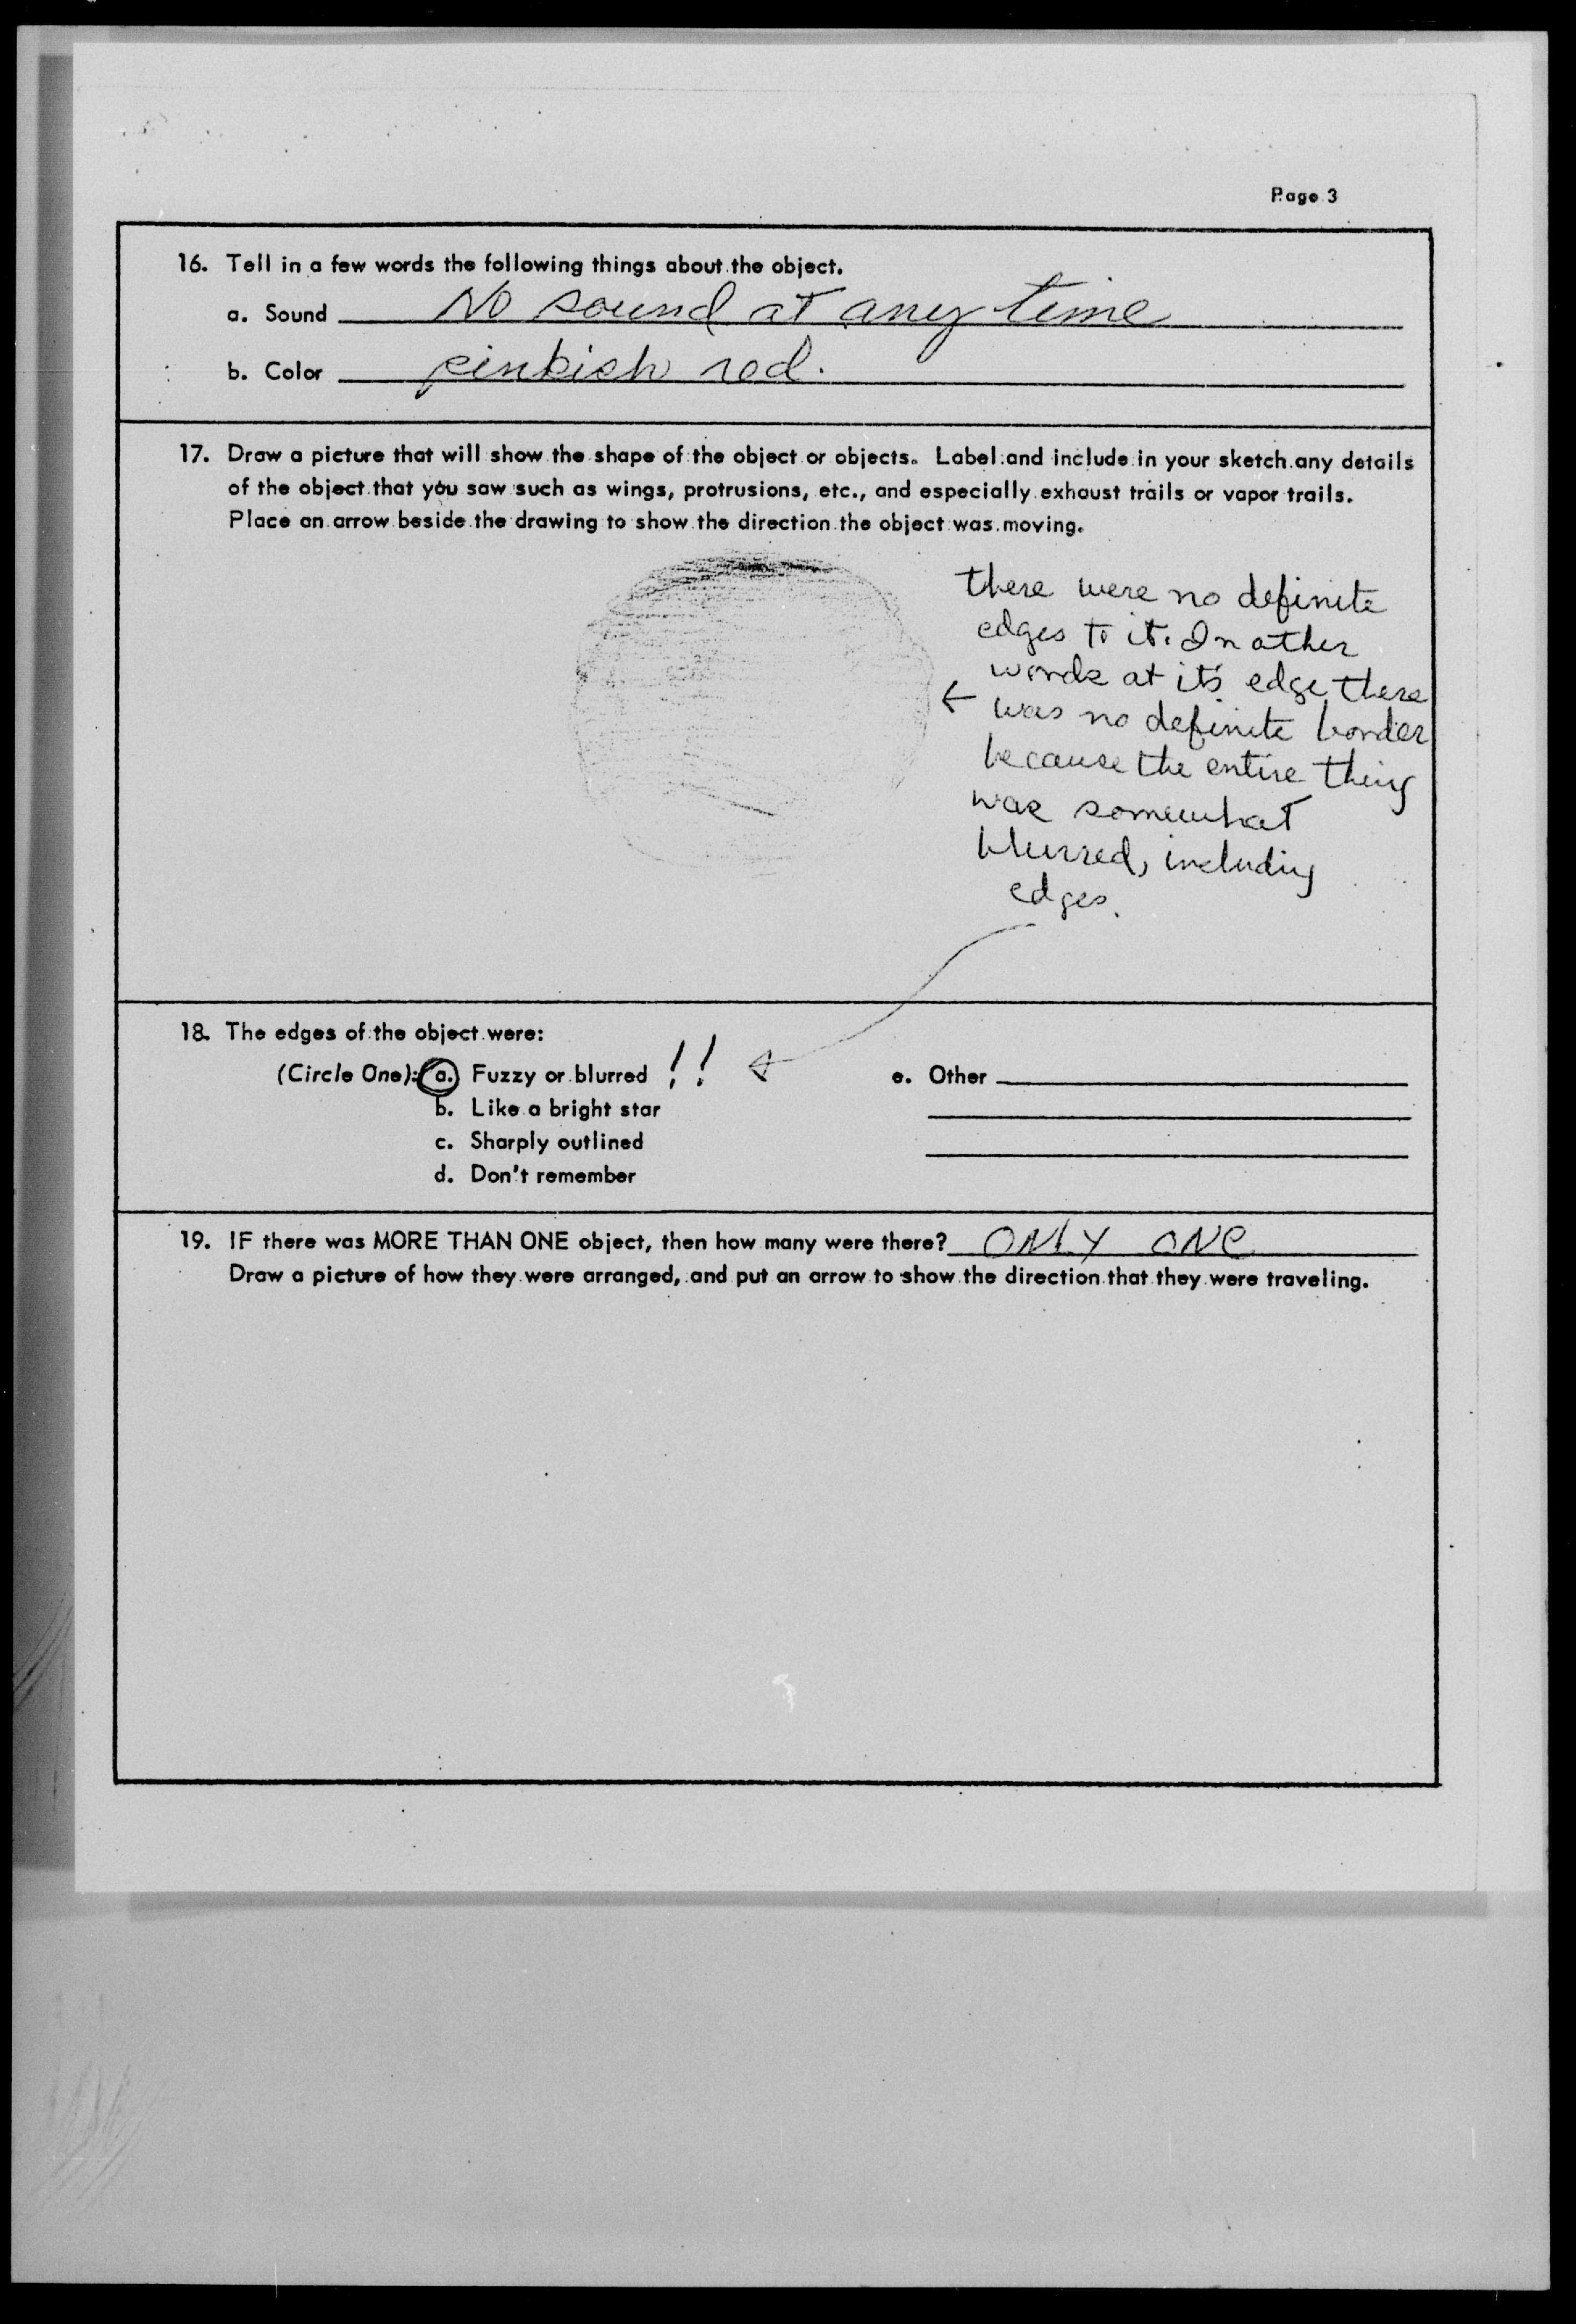 Page 3
16. Tell in a few words the following things about the object.
a. Sound No sound at any time
b. Color pinkish red.
17. Draw a picture that will show the shape of the object or objects. Label and include in your sketch any details
of the object that you saw such as wings, protrusions, etc., and especially exhaust trails or vapor trails.
Place an arrow beside the drawing to show the direction the object was moving.
there were no definite
edges to it. In other
words at it's edge there
← was no definite border
because the entire thing
was somewhat
blurred, including
edges.
18. The edges of the object were:
(Circle One): a. Fuzzy or blurred !! e. Other
b. Like a bright star
c. Sharply outlined
d. Don't remember
19. IF there was MORE THAN ONE object, then how many were there? ONLY ONE
Draw a picture of how they were arranged, and put an arrow to show the direction that they were traveling.